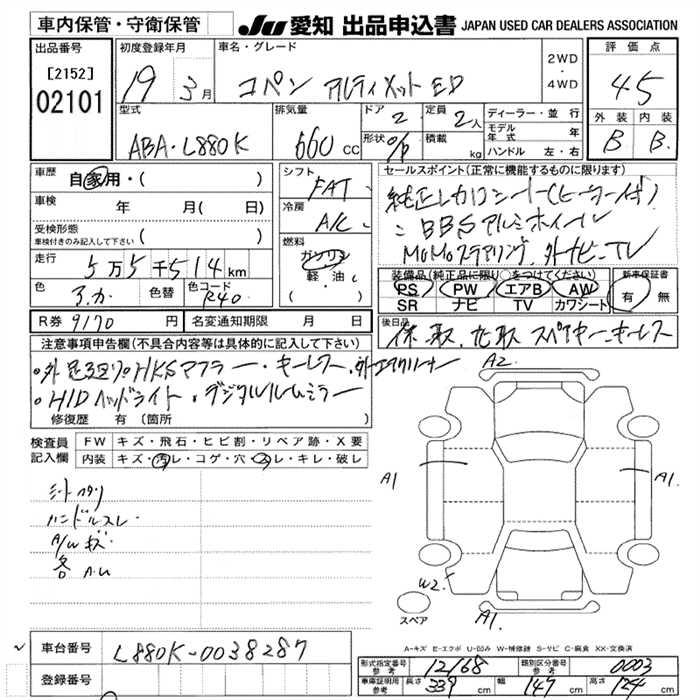 車内保管・守衛保管
JU 愛知 出品申込書 JAPAN USED CAR DEALERS ASSOCIATION
出品番号 [2152] 02101
初度登録年月 19年 3月
車名・グレード コペン アルティメット ED
2WD・4WD
評価点 4.5
外装 B 内装 B
型式 ABA・L880K
排気量 660 CC
ドア 2
形状 O/P
定員 2人
積載 kg
ディーラー・並行
モデル年式 年
ハンドル 左・右
車歴 自家用・( )
車検 年 月( 日)
受検形態 車検付きのみ記入して下さい ( )
走行 5万5千514km
色 ア.カ 色替 色コード R40
シフト FAT
冷房 A/C
燃料 ガソリン 軽・油 ( )
セールスポイント(正常に機能するものに限ります)
純正レカロシート(ヒーター付)
BBSアルミホイール
MOMOステアリング.外ナビ-TV
装備品(純正品に限り○をつけてください)
PS PW エアB AW
SR ナビ TV カワシート
新車保証書 有 無
R券 9170 円 名変通知期限 月 日
後日品 保.取. 記取 スペアキー.キーレス
注意事項申告欄(不具合内容等は具体的に記入して下さい)
HKSマフラー・キーレス.外エアクリーナー
・HIDヘッドライト・デジタルルームミラー
修復歴 有 (箇所 )
検査員記入欄
FW キズ・飛石・ヒビ割・リペア跡・X要
内装 キズ・汚レ・コゲ・穴・スレ・キレ・破レ
シートヘタリ
ハンドルスレ
A/Wキズ
各 A.U
A2
A1
A1
W2
A1
スペア
A-キズ E-エクボ U-凹み W-補修跡 S-サビ C-腐食 XX-交換済
車台番号 L880K-0038287
登録番号
形式指定番号 参考 12168 類別区分番号 参考 0003
車庫証明用 参考 長さ 339 cm 幅 147 cm 高さ 124 cm